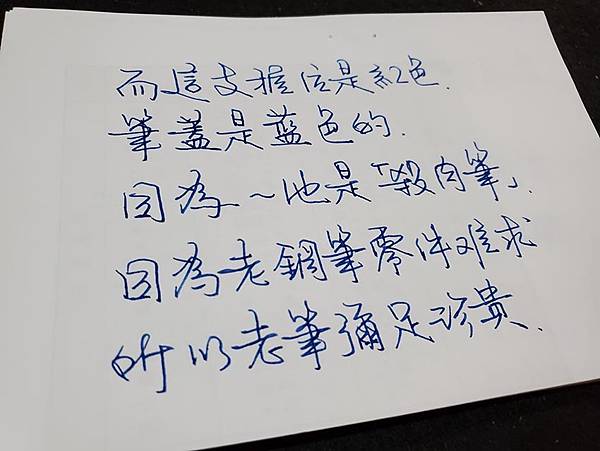 而這支握位是紅色.
筆蓋是蓝色的.
因為~他是「殺肉筆」.
因為老鋼筆零件难求
所以老筆彌足珍貴.